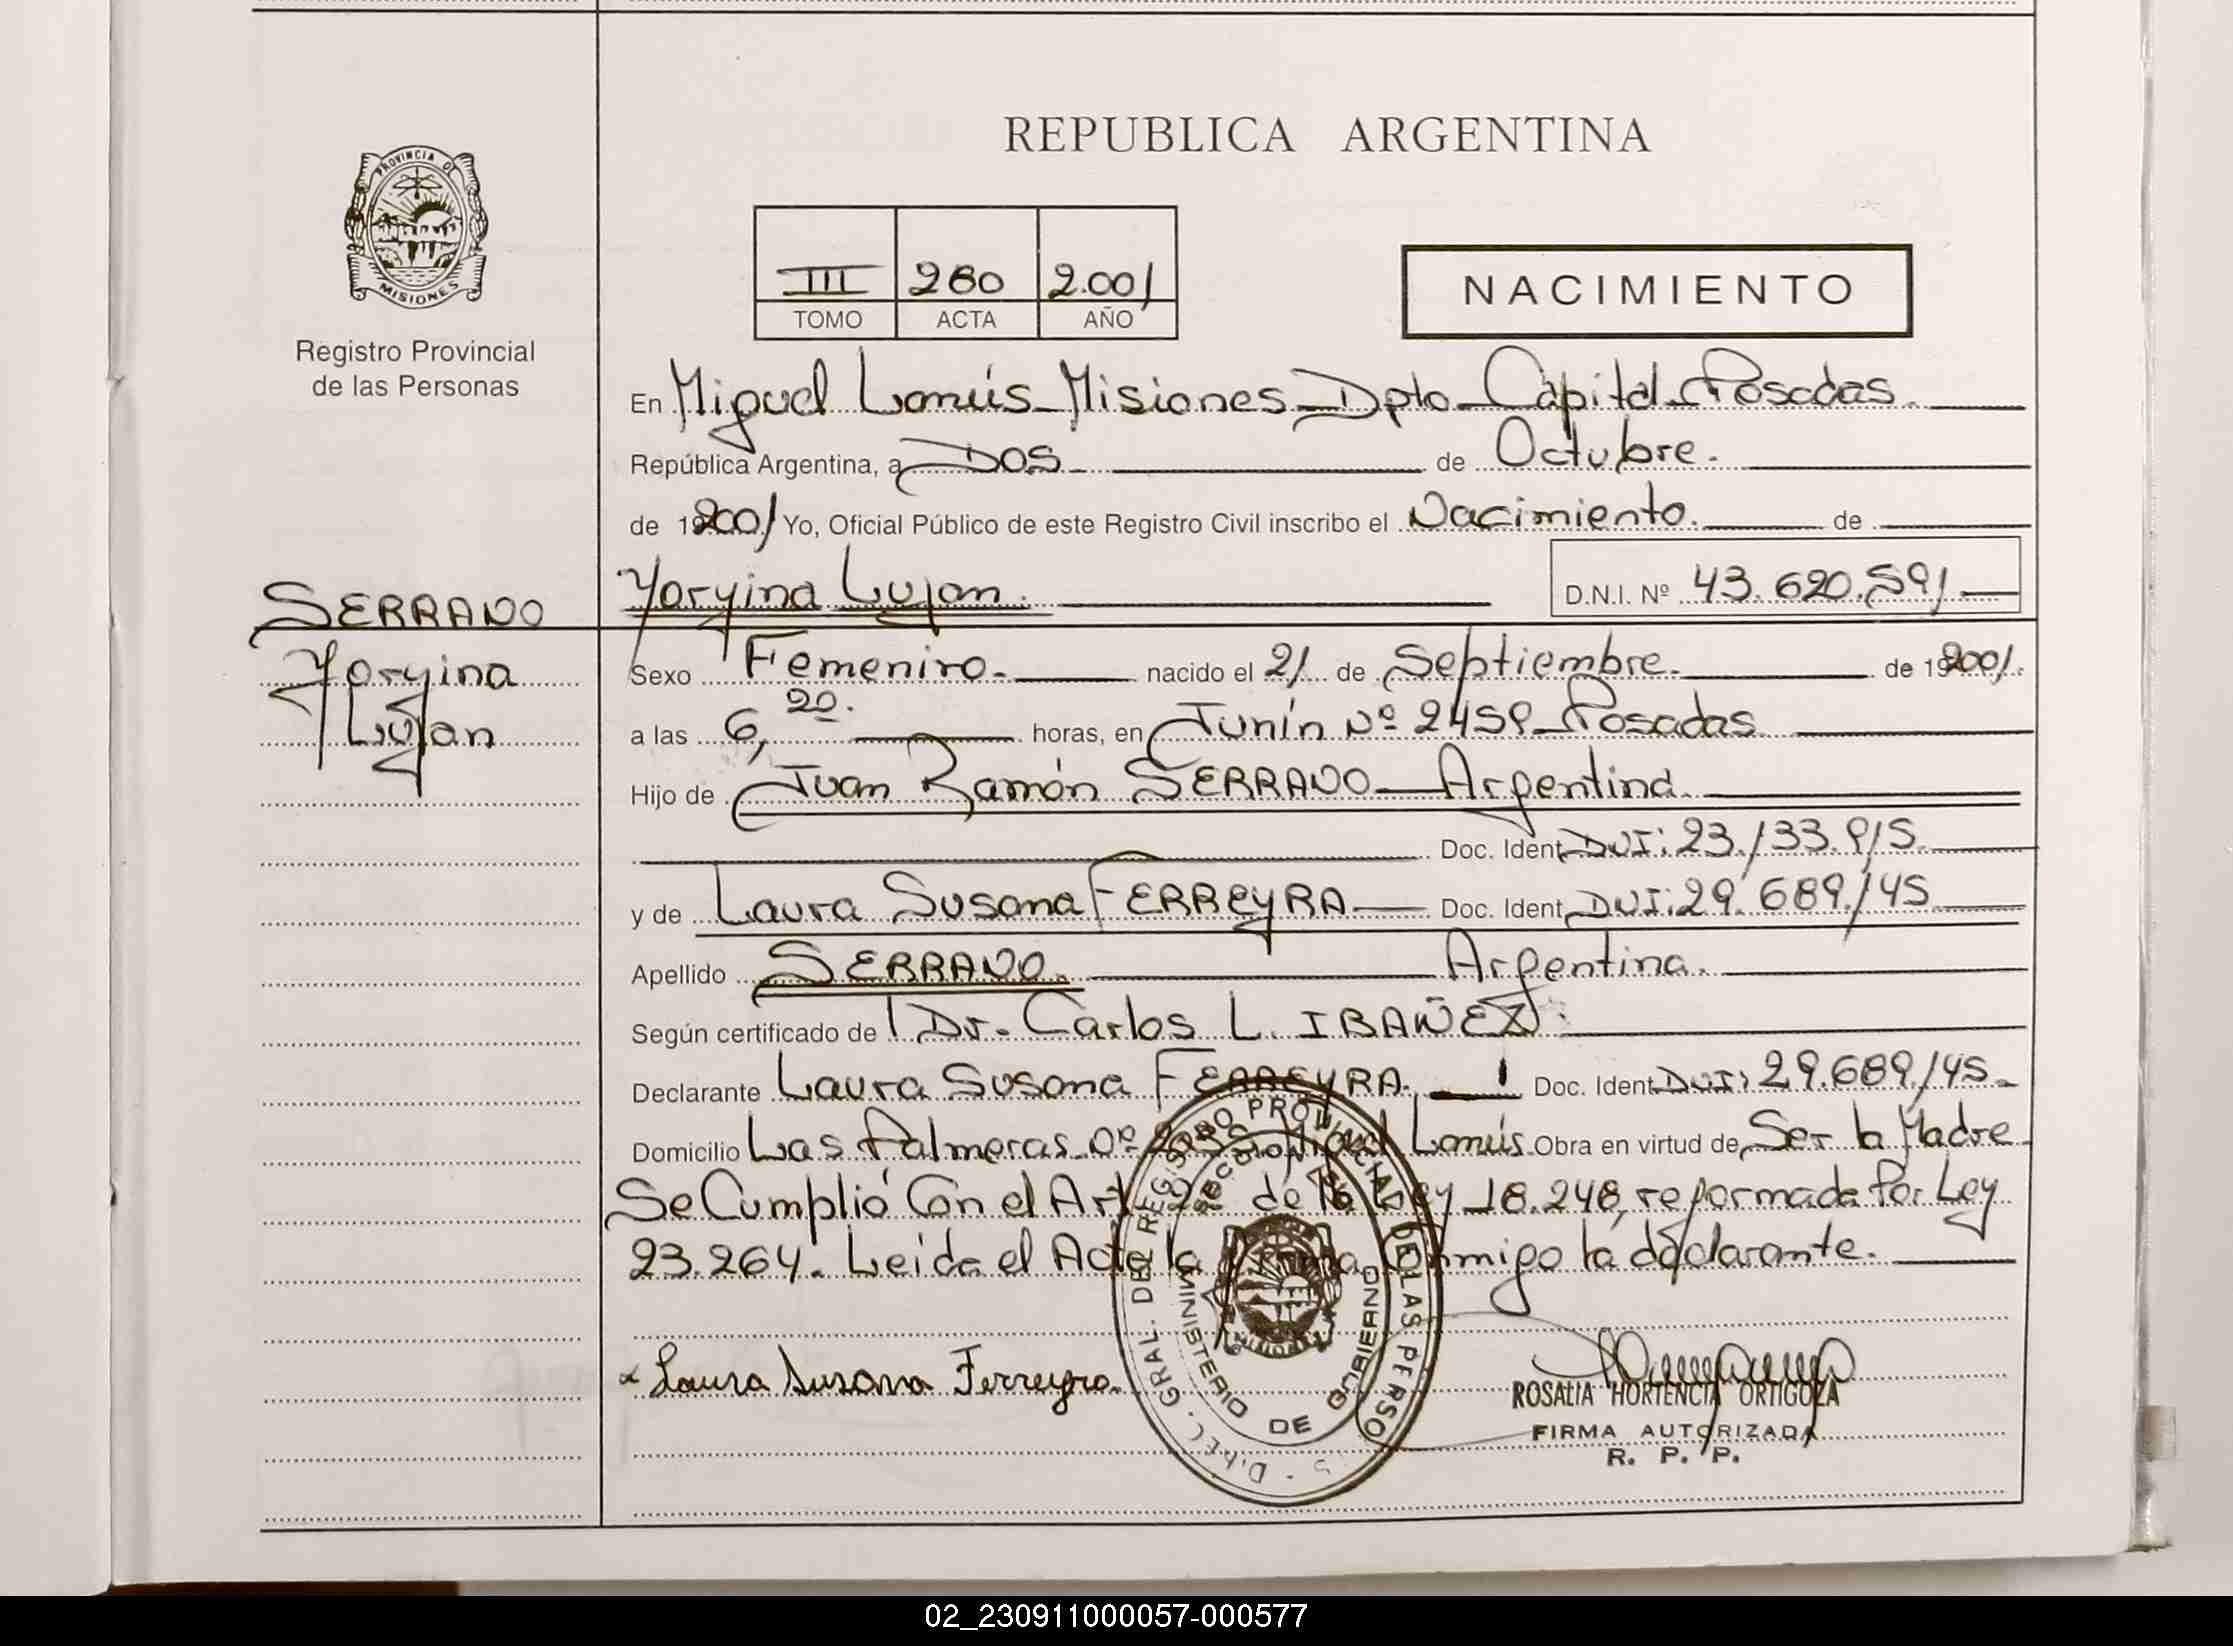 REPUBLICA ARGENTINA
PROVINCIA DE
MISIONES
Registro Provincial
de las Personas
III 280 2.001
TOMO ACTA AÑO
NACIMIENTO
En Miguel Lanús_Misiones_Dpto_Capital_Posadas.
República Argentina, a DOS de Octubre.
de 19 2001 Yo, Oficial Público de este Registro Civil inscribo el Nacimiento. de
SERRANO Yoryina Lujan. D.N.I. Nº 43.620.591
Yoryina
Lujan
Sexo Femenino. nacido el 21 de Septiembre. de 19 2001.
a las 6,20. horas, en Junín Nº 2459_Posadas
Hijo de Juan Ramón SERRANO_Argentina.
Doc. Ident DNI: 23.133.915.
y de Laura Susana FERREYRA Doc. Ident DNI: 29.689.145
Apellido SERRANO. Argentina.
Según certificado de Dr. Carlos L. IBAÑEZ.
Declarante Laura Susana FERREYRA. Doc. Ident DNI: 29.689.145
Domicilio Las Palmeras Nº Miguel Lanús Obra en virtud de Ser la Madre
Se Cumplió Con el Art 2º de la Ley 18.248, reformada Por Ley
23.264. Leida el Acta la firma Conmigo la declarante.
Laura Susana Ferreyra.
DIREC. GRAL. DEL REGISTRO PROVINCIAL DE LAS PERSONAS
MINISTERIO DE GOBIERNO
ROSALIA HORTENCIA ORTIGOZA
FIRMA AUTORIZADA
R. P. P.
02_230911000057-000577